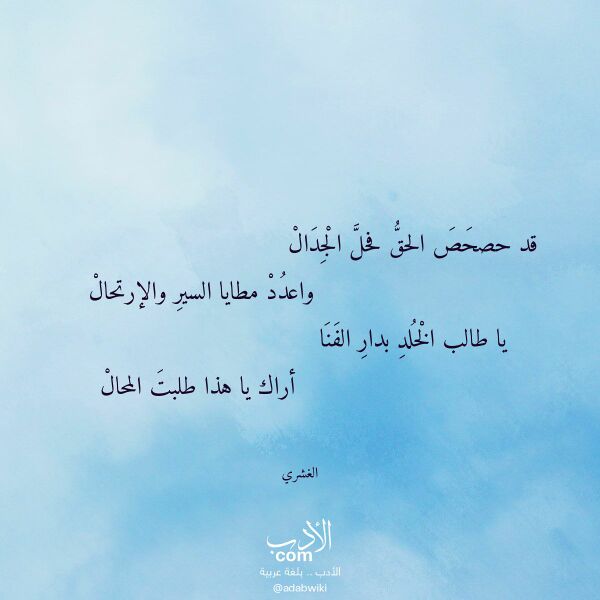 قد حصحَصَ الحقُّ فحلَّ الْجِدَالْ
واعدُدْ مطايا السيرِ والإرتحالْ
يا طالب الْخُلدِ بدارِ الفَنَا
أراك يا هذا طلبتَ المحالْ
الغشري
الأدب
com
الأدب .. بلغة عربية
@adabwiki